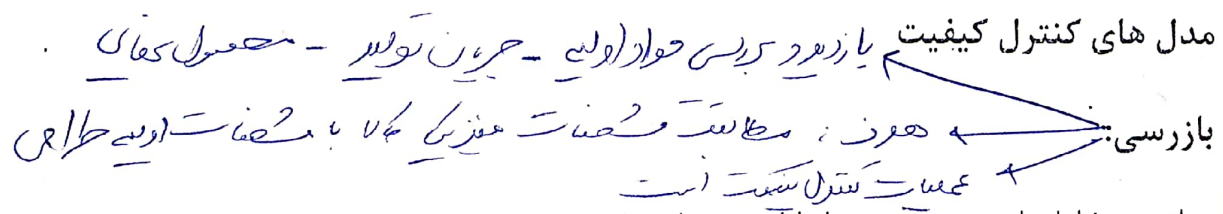 مدل های کنترل کیفیت
بازدید و بررسی مواد اولیه - جریان تولید - محصول نهایی.
بازرسی: هدف: مطابقت مشخصات فیزیکی کالا با مشخصات اولیه طراحی
عملیات کنترل کیفیت است